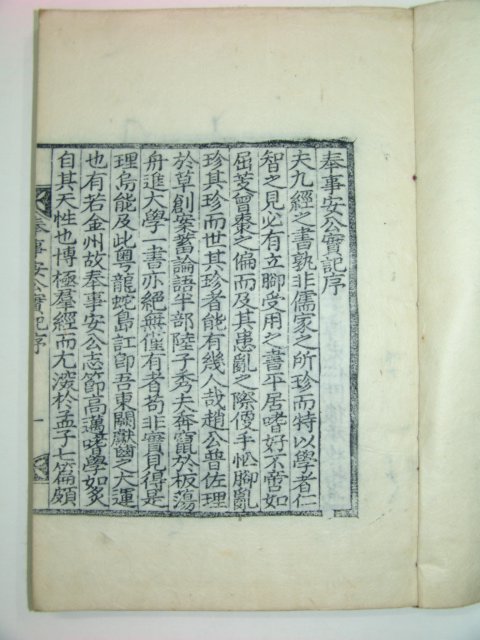 奉事安公實記序
夫九經之書孰非儒家之所珍而特以學者仁
智之見必有立脚受用之書平居嗜好不啻如
屈芰曾棗之偏而及其患亂之際傻手忙脚亂
珍其珍而世其珍者能有幾人哉趙公普佐理
於草創案蓄論語半部陸子秀夫奔竄於板蕩
舟進大學一書亦絕無僅有者苟非實見得是
理烏能及此粤龍蛇島訌卽吾東闢獻之大運
也有若金州故奉事安公志節高邁嗜學如炙
自其天性也博極羣經而尤深於孟子七篇頗
奉事安公實記序
一